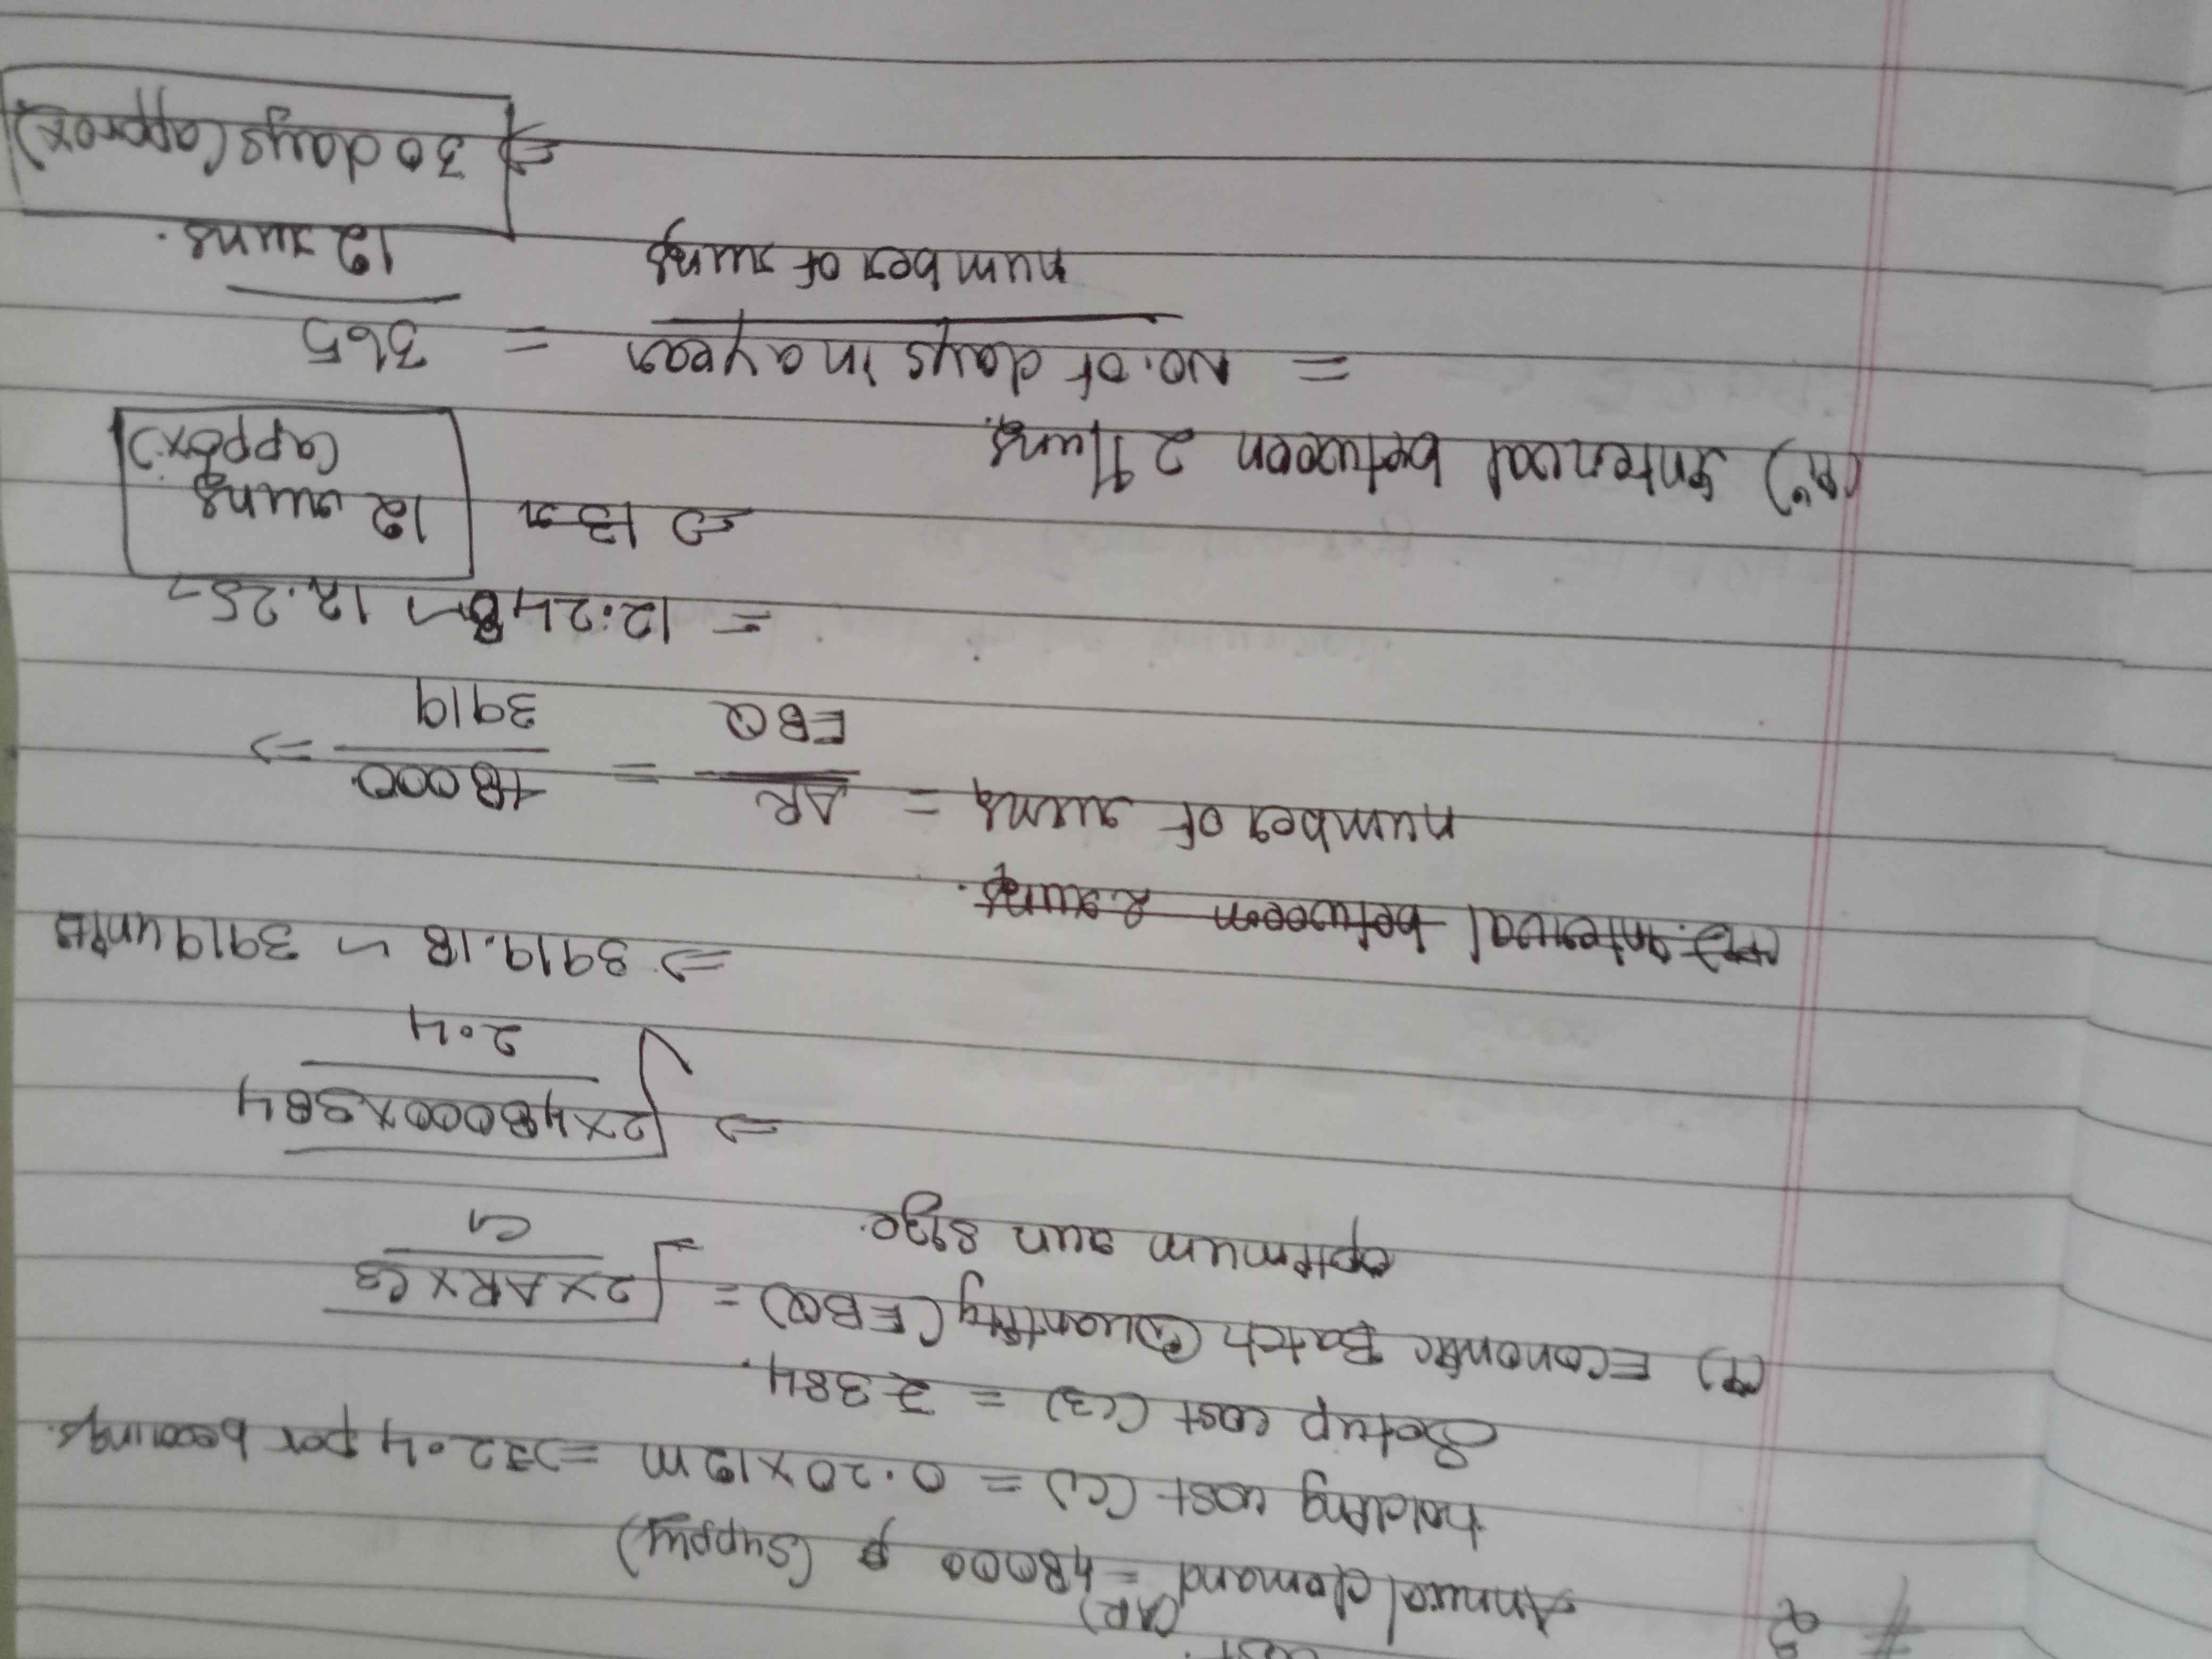 cost.
Q
Annual demand (AR) = 48000 (supply)
holding cost (C1) = 0.20 x 12m => ₹2.4 per bearings.
Setup cost (C3) = ₹384.
(i) Economic Batch Quantity (EBQ) = √2 x AR x C3 / C1
optimum run size.
=> √2 x 48000 x 384 / 2.4
=> 3919.18 ~ 3919 units
(ii). Interval between 2 runs.
number of runs = AR / EBQ = 48000 / 3919 =>
= 12.248 ~ 12.25
=> 13 r 12 runs (approx.)
(ii) Interval between 2 runs.
= No. of days in a year / number of runs = 365 / 12 runs.
=> 30 days (approx)